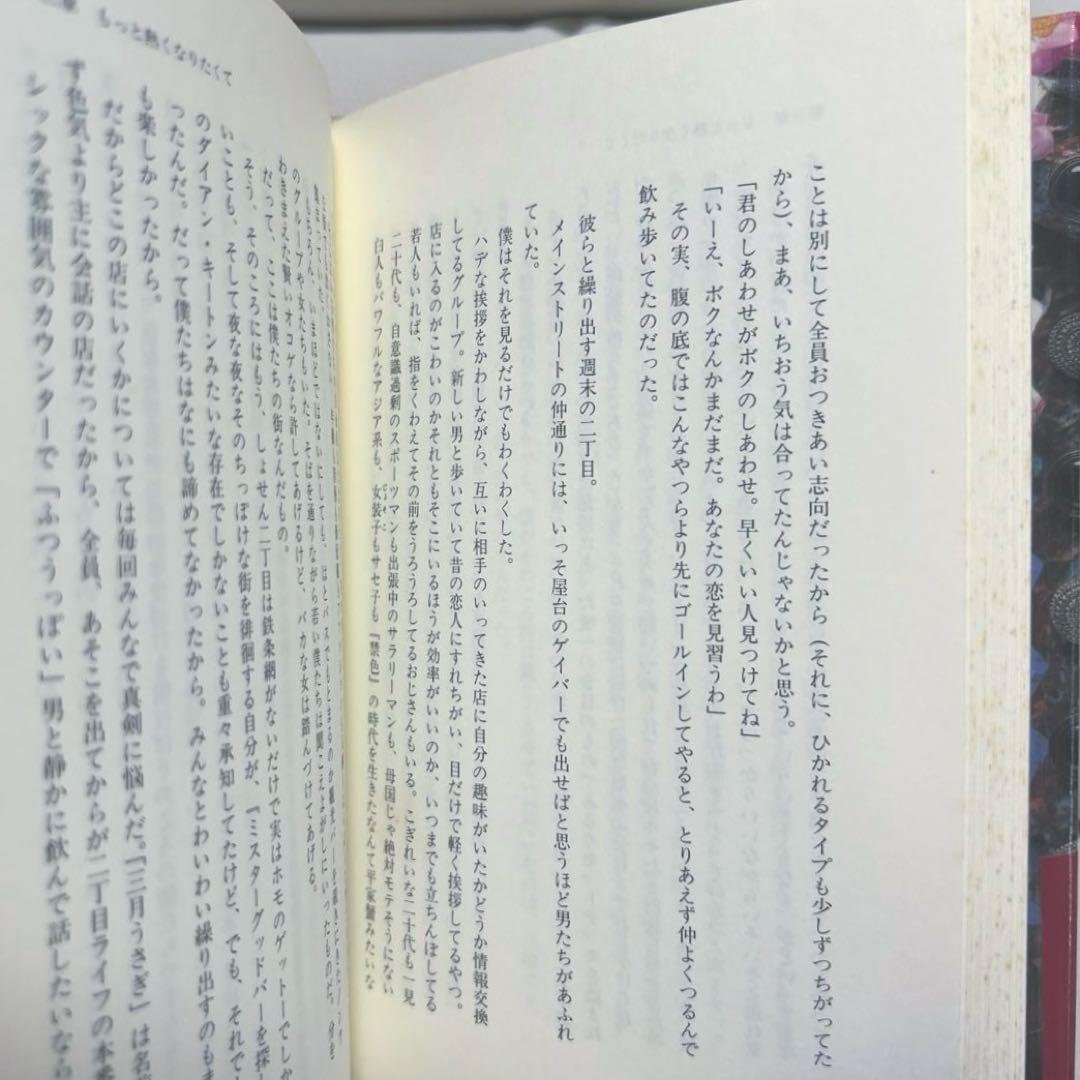 ことは別にして全員おつきあい志向だったから（それに、ひかれるタイプも少しずつちがってた
から）、まあ、いちおう気は合ってたんじゃないかと思う。
「君のしあわせがボクのしあわせ。早くいい人見つけてね」
「いーえ、ボクなんかまだまだ。あなたの恋を見習うわ」
その実、腹の底ではこんなやつらより先にゴールインしてやると、とりあえず仲よくつるんで
飲み歩いてたのだった。
彼らと繰り出す週末の二丁目。
メインストリートの仲通りには、いっそ屋台のゲイバーでも出せばと思うほど男たちがあふれ
ていた。
僕はそれを見るだけでもわくわくした。
ハデな挨拶をかわしながら、互いに相手のいってきた店に自分の趣味がいたかどうか情報交換
してるグループ。新しい男と歩いていて昔の恋人にすれちがい、目だけで軽く挨拶してるやつ。
店に入るのがこわいのかそれともそこにいるほうが効率がいいのか、いつまでも立ちんぼしてる
若人もいれば、指をくわえてその前をうろうろしてるおじさんもいる。こぎれいな二十代も一見
二十代も、自意識過剰のスポーツマンも出張中のサラリーマンも、母国じゃ絶対モテそうにない
白人もパワフルなアジア系も、女装子もサセ子も『禁色』の時代を生きたなんて平家蟹みたいな
もっと熱くなりたくて
もちろん、いまほどではないにしても、はとバスでもとまるのか観光バー
のグループや女たちもいた。そばを通りながら若い僕たちは聞こえよがしにいったものだ。
わきまえた賢いオコゲなら許してあげるけど、バカな女は踏んづけてあげる。
だって、ここは僕たちの街なんだもの。
そう、そのころにはもう、しょせん二丁目は鉄条網がないだけで実はホモのゲットーでしか
いことも、そして夜な夜なそのちっぽけな街を徘徊する自分が、『ミスターグッドバーを探し
のダイアン・キートンみたいな存在でしかないことも重々承知してたけど、でも、それで
ったんだ。だって僕たちはなにも諦めてなかったから。みんなとわいわい繰り出すのも
も楽しかったから。
だからどこの店にいくかについては毎回みんなで真剣に悩んだ。『三月うさぎ』は名
す色気より主に会話の店だったから、全員、あそこを出てからが二丁目ライフの本番
シックな雰囲気のカウンターで「ふつうっぽい」男と静かに飲んで話したいなら